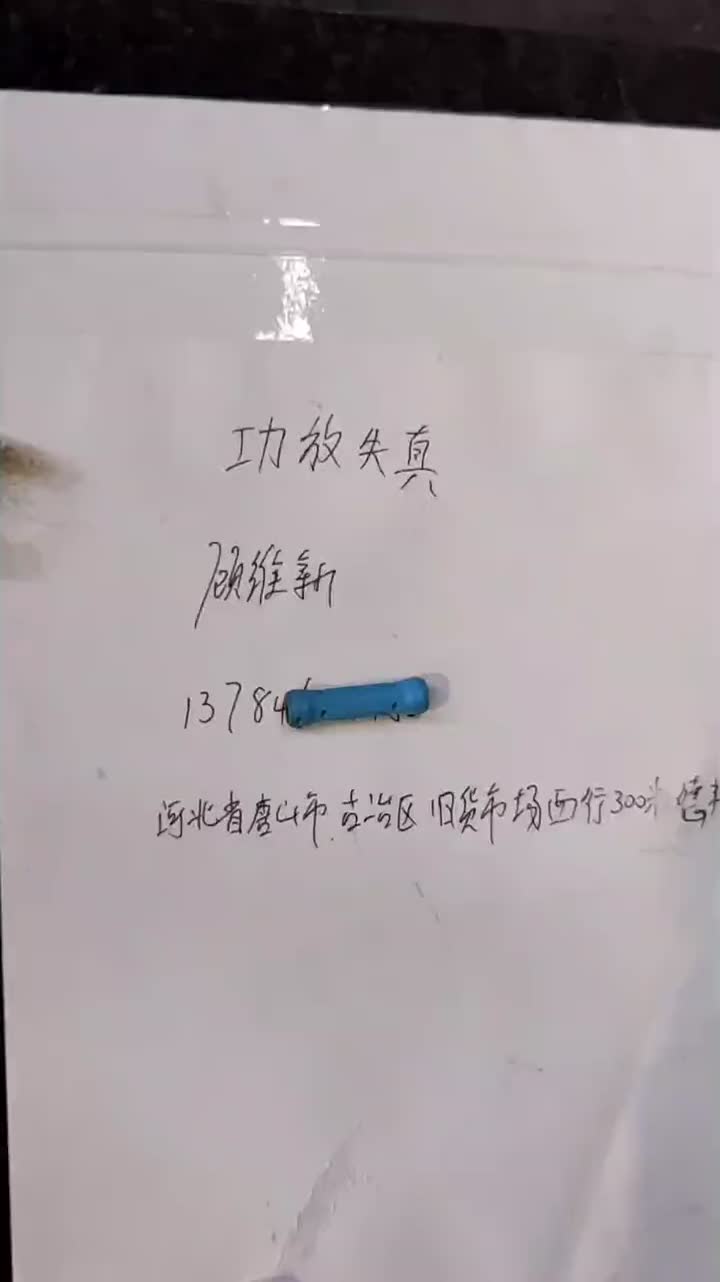 功放失真
顾维新
13784
河北省唐山市古冶区旧货市场西行300米